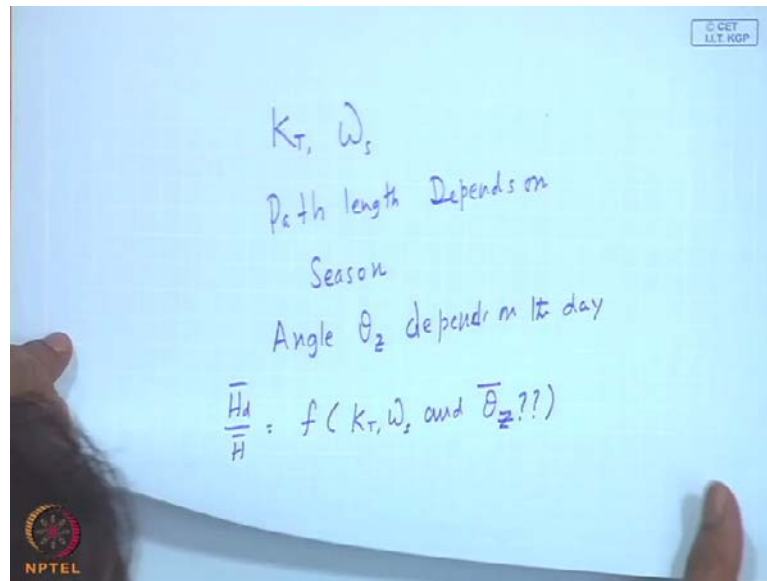 © CET
I.I.T. KGP
K_T, ω_s
Path length Depends on
Season
Angle θ_z depends on the day
H̄_d / H̄ = f ( K_T, ω_s and θ̄_z ?? )
NPTEL